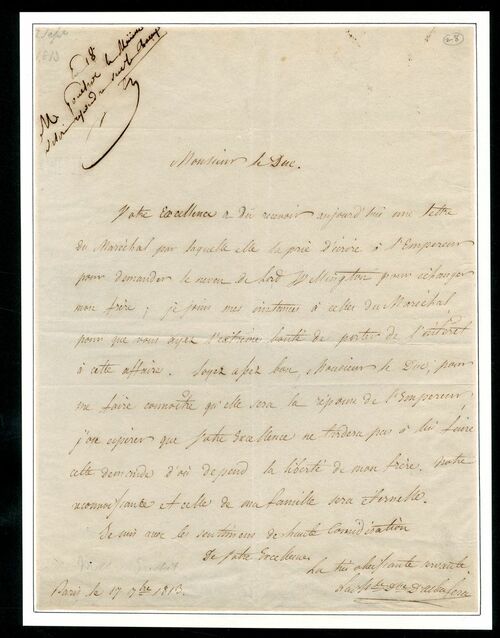 28
18
Monsieur le Duc.
Votre Excellence a dû recevoir aujourd'hui une lettre
du Maréchal par laquelle elle le prie d'écrire à l'Empereur
pour demander le neveu de Lord Wellington pour échanger
mon frère ; je joins mes instances à celles du Maréchal
pour que vous ayez l'extrême bonté de porter de l'intérêt
à cette affaire. Soyez assez bon, Monsieur le Duc, pour
me faire connoître qu'elle sera la réponse de l'Empereur,
j'ose espérer que Votre Excellence ne tardera pas à lui faire
cette demande d'où dépend la liberté de mon frère. Notre
reconnoissante et celle de ma famille sera éternelle.
Je suis avec les sentimens de haute Considération
De Votre Excellence
La très obéissante servante.
Paris le 17 7bre 1813.